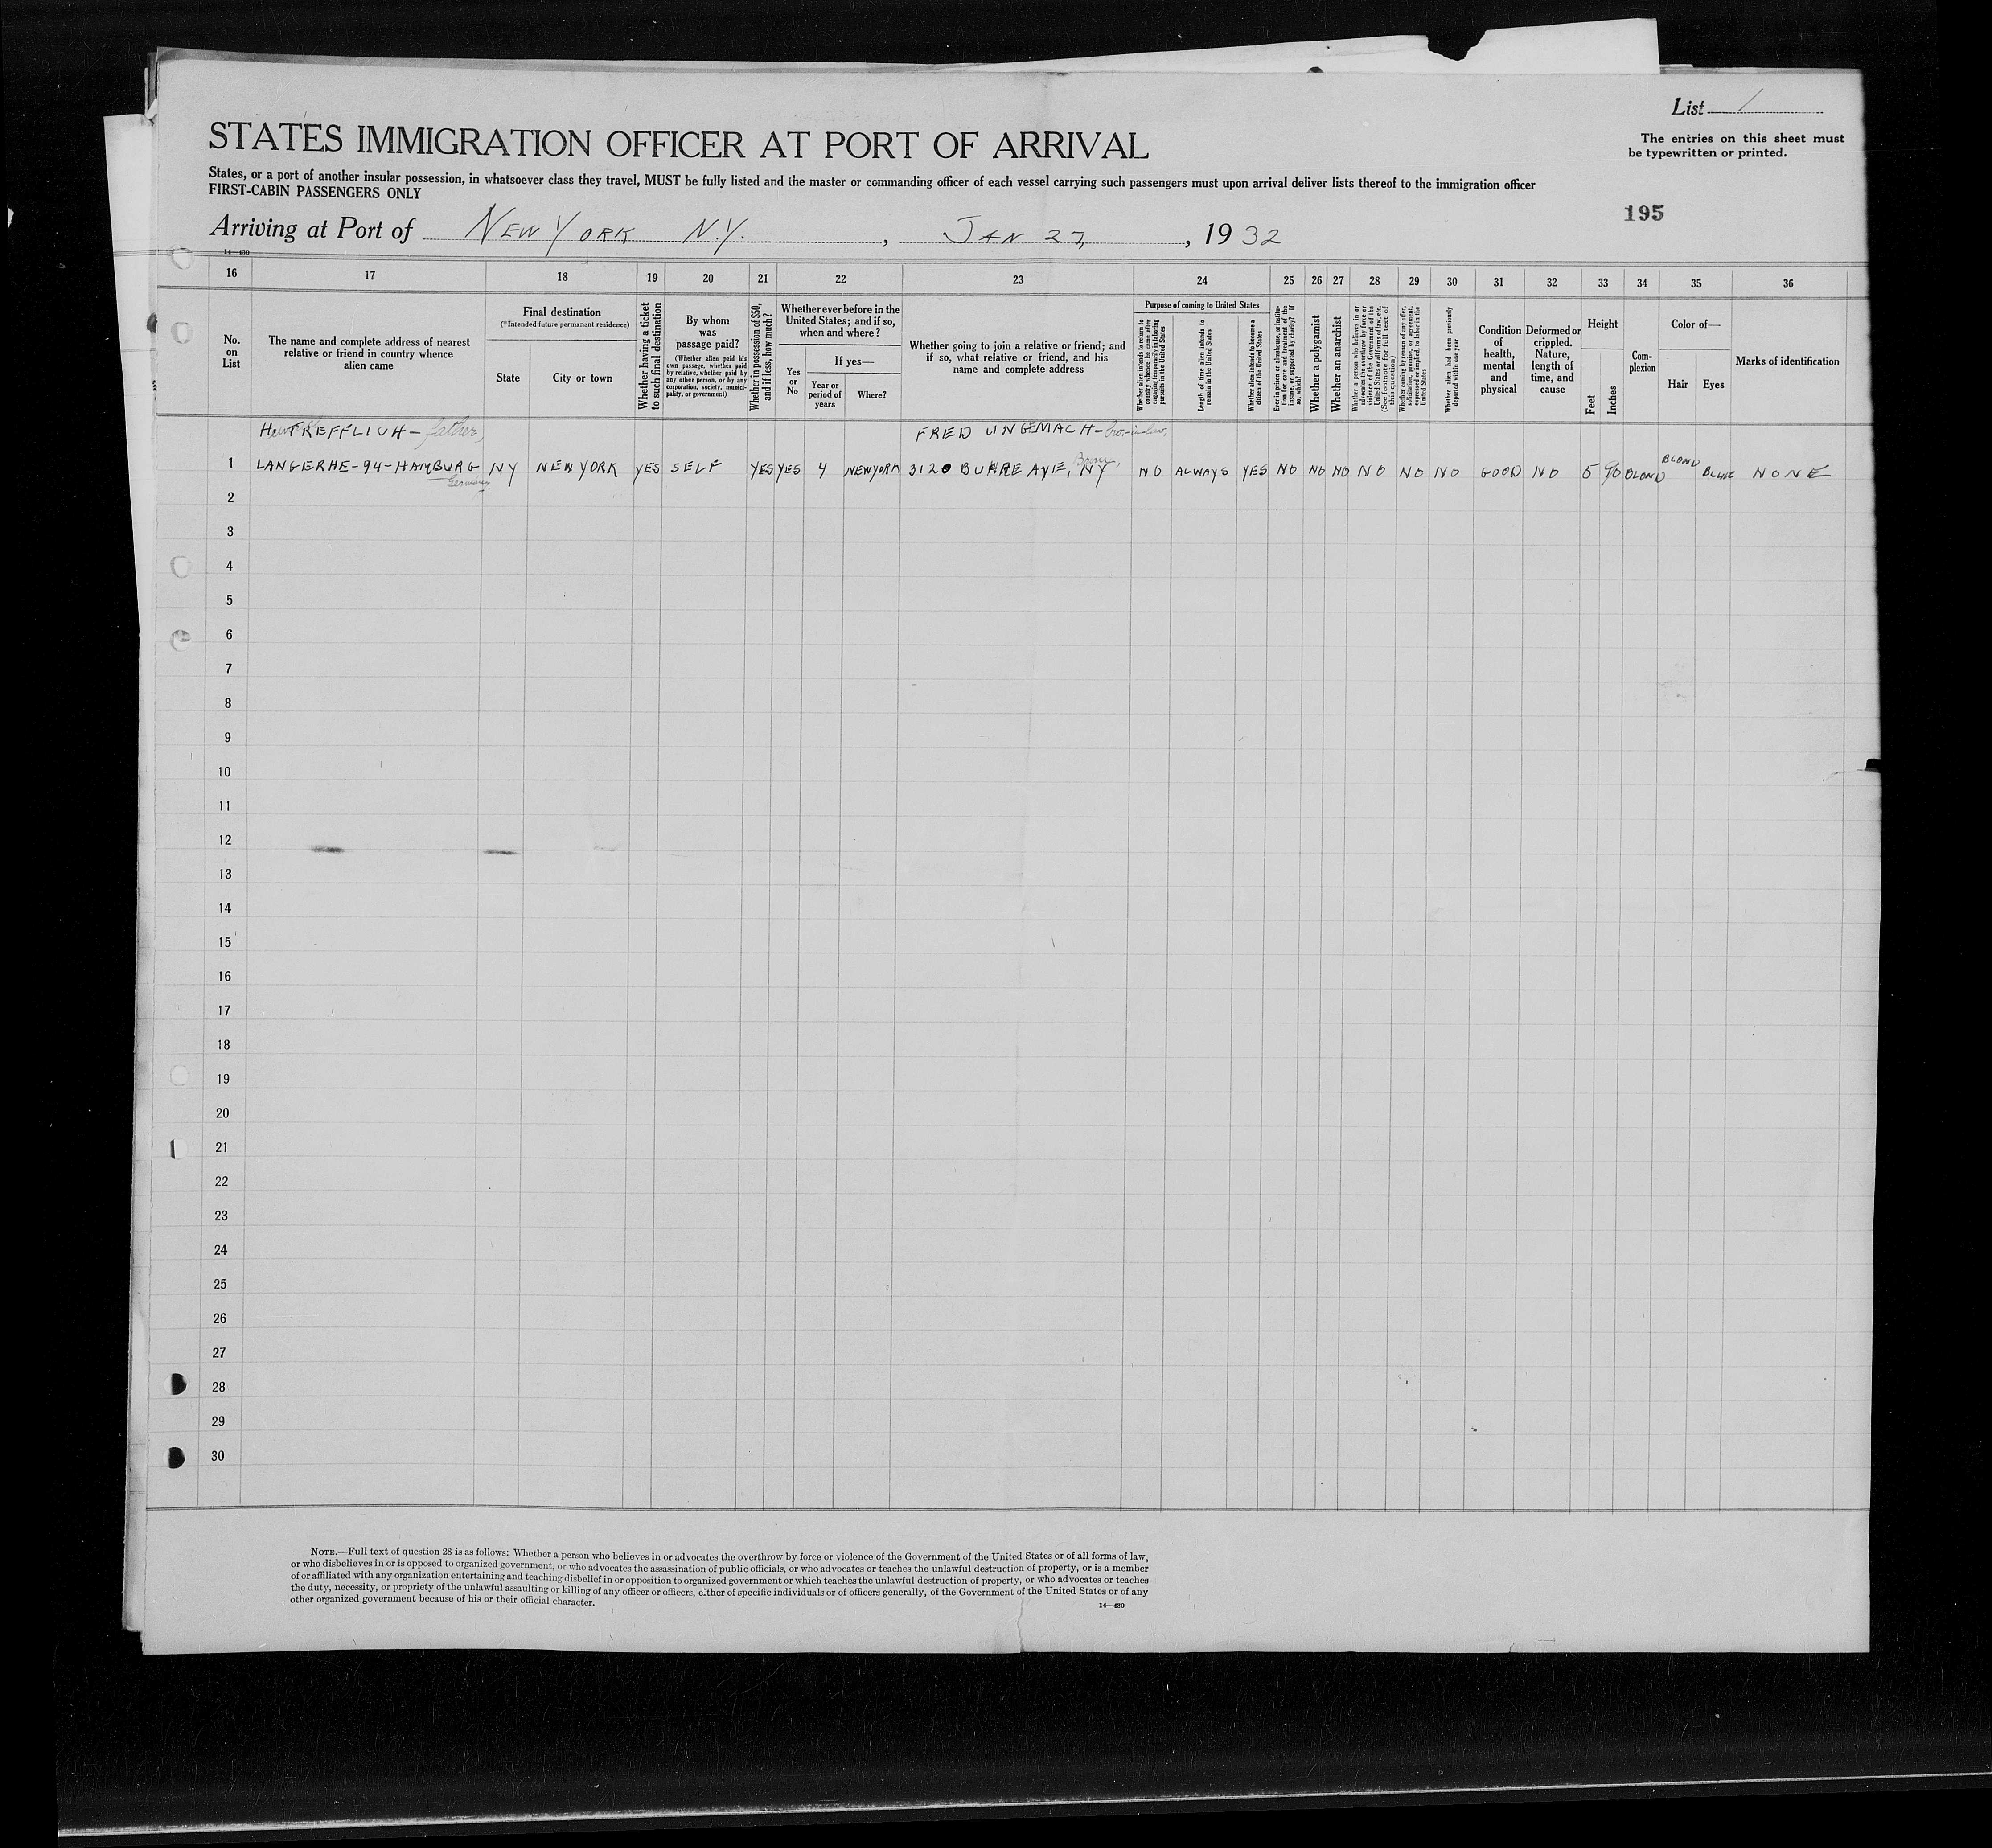 List 1
STATES IMMIGRATION OFFICER AT PORT OF ARRIVAL
The entries on this sheet must
be typewritten or printed.
States, or a port of another insular possession, in whatsoever class they travel, MUST be fully listed and the master or commanding officer of each vessel carrying such passengers must upon arrival deliver lists thereof to the immigration officer
FIRST-CABIN PASSENGERS ONLY
195
Arriving at Port of NEW YORK N.Y. , JAN 27, , 1932
14—430
16 17 18 19 20 21 22 23 24 25 26 27 28 29 30 31 32 33 34 35 36
No. on List
The name and complete address of nearest relative or friend in country whence alien came
Final destination
(*Intended future permanent residence)
State
City or town
Whether having a ticket to such final destination
By whom was passage paid?
(Whether alien paid his own passage, whether paid by relative, whether paid by any other person, or by any corporation, society, municipality, or government)
Whether in possession of $50, and if less, how much?
Whether ever before in the United States; and if so, when and where?
Yes or No
If yes—
Year or period of years
Where?
Whether going to join a relative or friend; and if so, what relative or friend, and his name and complete address
Purpose of coming to United States
Whether alien intends to return to country whence he came after engaging temporarily in laboring pursuits in the United States
Length of time alien intends to remain in the United States
Whether alien intends to become a citizen of the United States
Ever in prison or almshouse, or institution for care and treatment of the insane, or supported by charity? If so, which?
Whether a polygamist
Whether an anarchist
Whether a person who believes in or advocates the overthrow by force or violence of the Government of the United States or all forms of law, etc. (See footnote for full text of this question)
Whether coming by reason of any offer, solicitation, promise, or agreement, expressed or implied, to labor in the United States
Whether alien had been previously deported within one year
Condition of health, mental and physical
Deformed or crippled. Nature, length of time, and cause
Height
Feet
Inches
Complexion
Color of—
Hair
Eyes
Marks of identification
TREFFLICH - father, FRED UNGEMACH - bro-in-law,
1 LANGERHE-94-HAMBURG Germany NY NEW YORK YES SELF YES YES 4 NEWYORK 3120 BUHRE AVE, Bronx, NY NO ALWAYS YES NO NO NO NO NO NO GOOD NO 5 BLOND BLOND BLUE NONE
2
3
4
5
6
7
8
9
10
11
12
13
14
15
16
17
18
19
20
21
22
23
24
25
26
27
28
29
30
NOTE.—Full text of question 28 is as follows: Whether a person who believes in or advocates the overthrow by force or violence of the Government of the United States or of all forms of law,
or who disbelieves in or is opposed to organized government, or who advocates the assassination of public officials, or who advocates or teaches the unlawful destruction of property, or is a member
of or affiliated with any organization entertaining and teaching disbelief in or opposition to organized government or which teaches the unlawful destruction of property, or who advocates or teaches
the duty, necessity, or propriety of the unlawful assaulting or killing of any officer or officers, either of specific individuals or of officers generally, of the Government of the United States or of any
other organized government because of his or their official character.
14—430